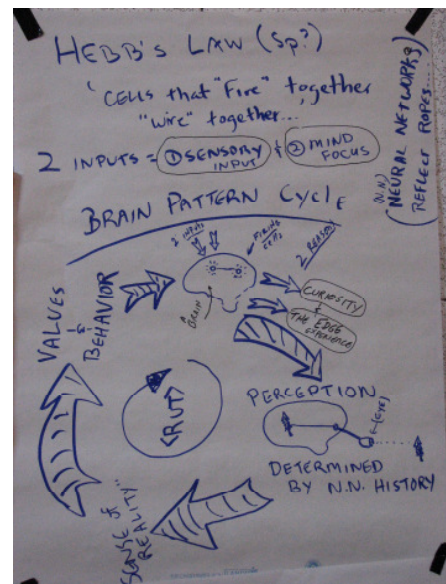 HEBB'S LAW (Sp?)
'CELLS that "Fire" together
"wire" together...'
2 INPUTS = ① SENSORY INPUT & ② MIND FOCUS
(N.N)
(NEURAL NETWORKS)
REFLECT ROPES...
BRAIN PATTERN CyclE
2 INPUTS
FIRING CELLS
2 REASONS
A BRAIN
CURIOSITY
&
THE "EDGE" EXPERIENCE
VALUES
&
BEHAVIOR
<RUT>
PERCEPTION
(EYE)
DETERMINED
BY N.N. HISTORY
"SENSE of
REALITY"